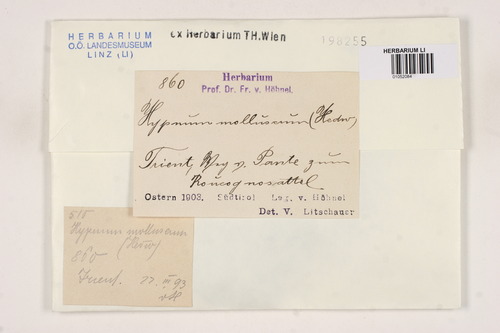 HERBARIUM
O.Ö. LANDESMUSEUM
LINZ (LI)
ex herbarium TH.Wien
198255
HERBARIUM LI
860
Herbarium
Prof. Dr. Fr. v. Höhnel.
Hypnum molluscum (Hedw)
Trient, Weg v. Pante zum
Roncognosattel
Ostern 1903. Südtirol Leg. v. Höhnel
Det. V. Litschauer
515
Hypnum molluscum
(Hedw)
860
Trient.